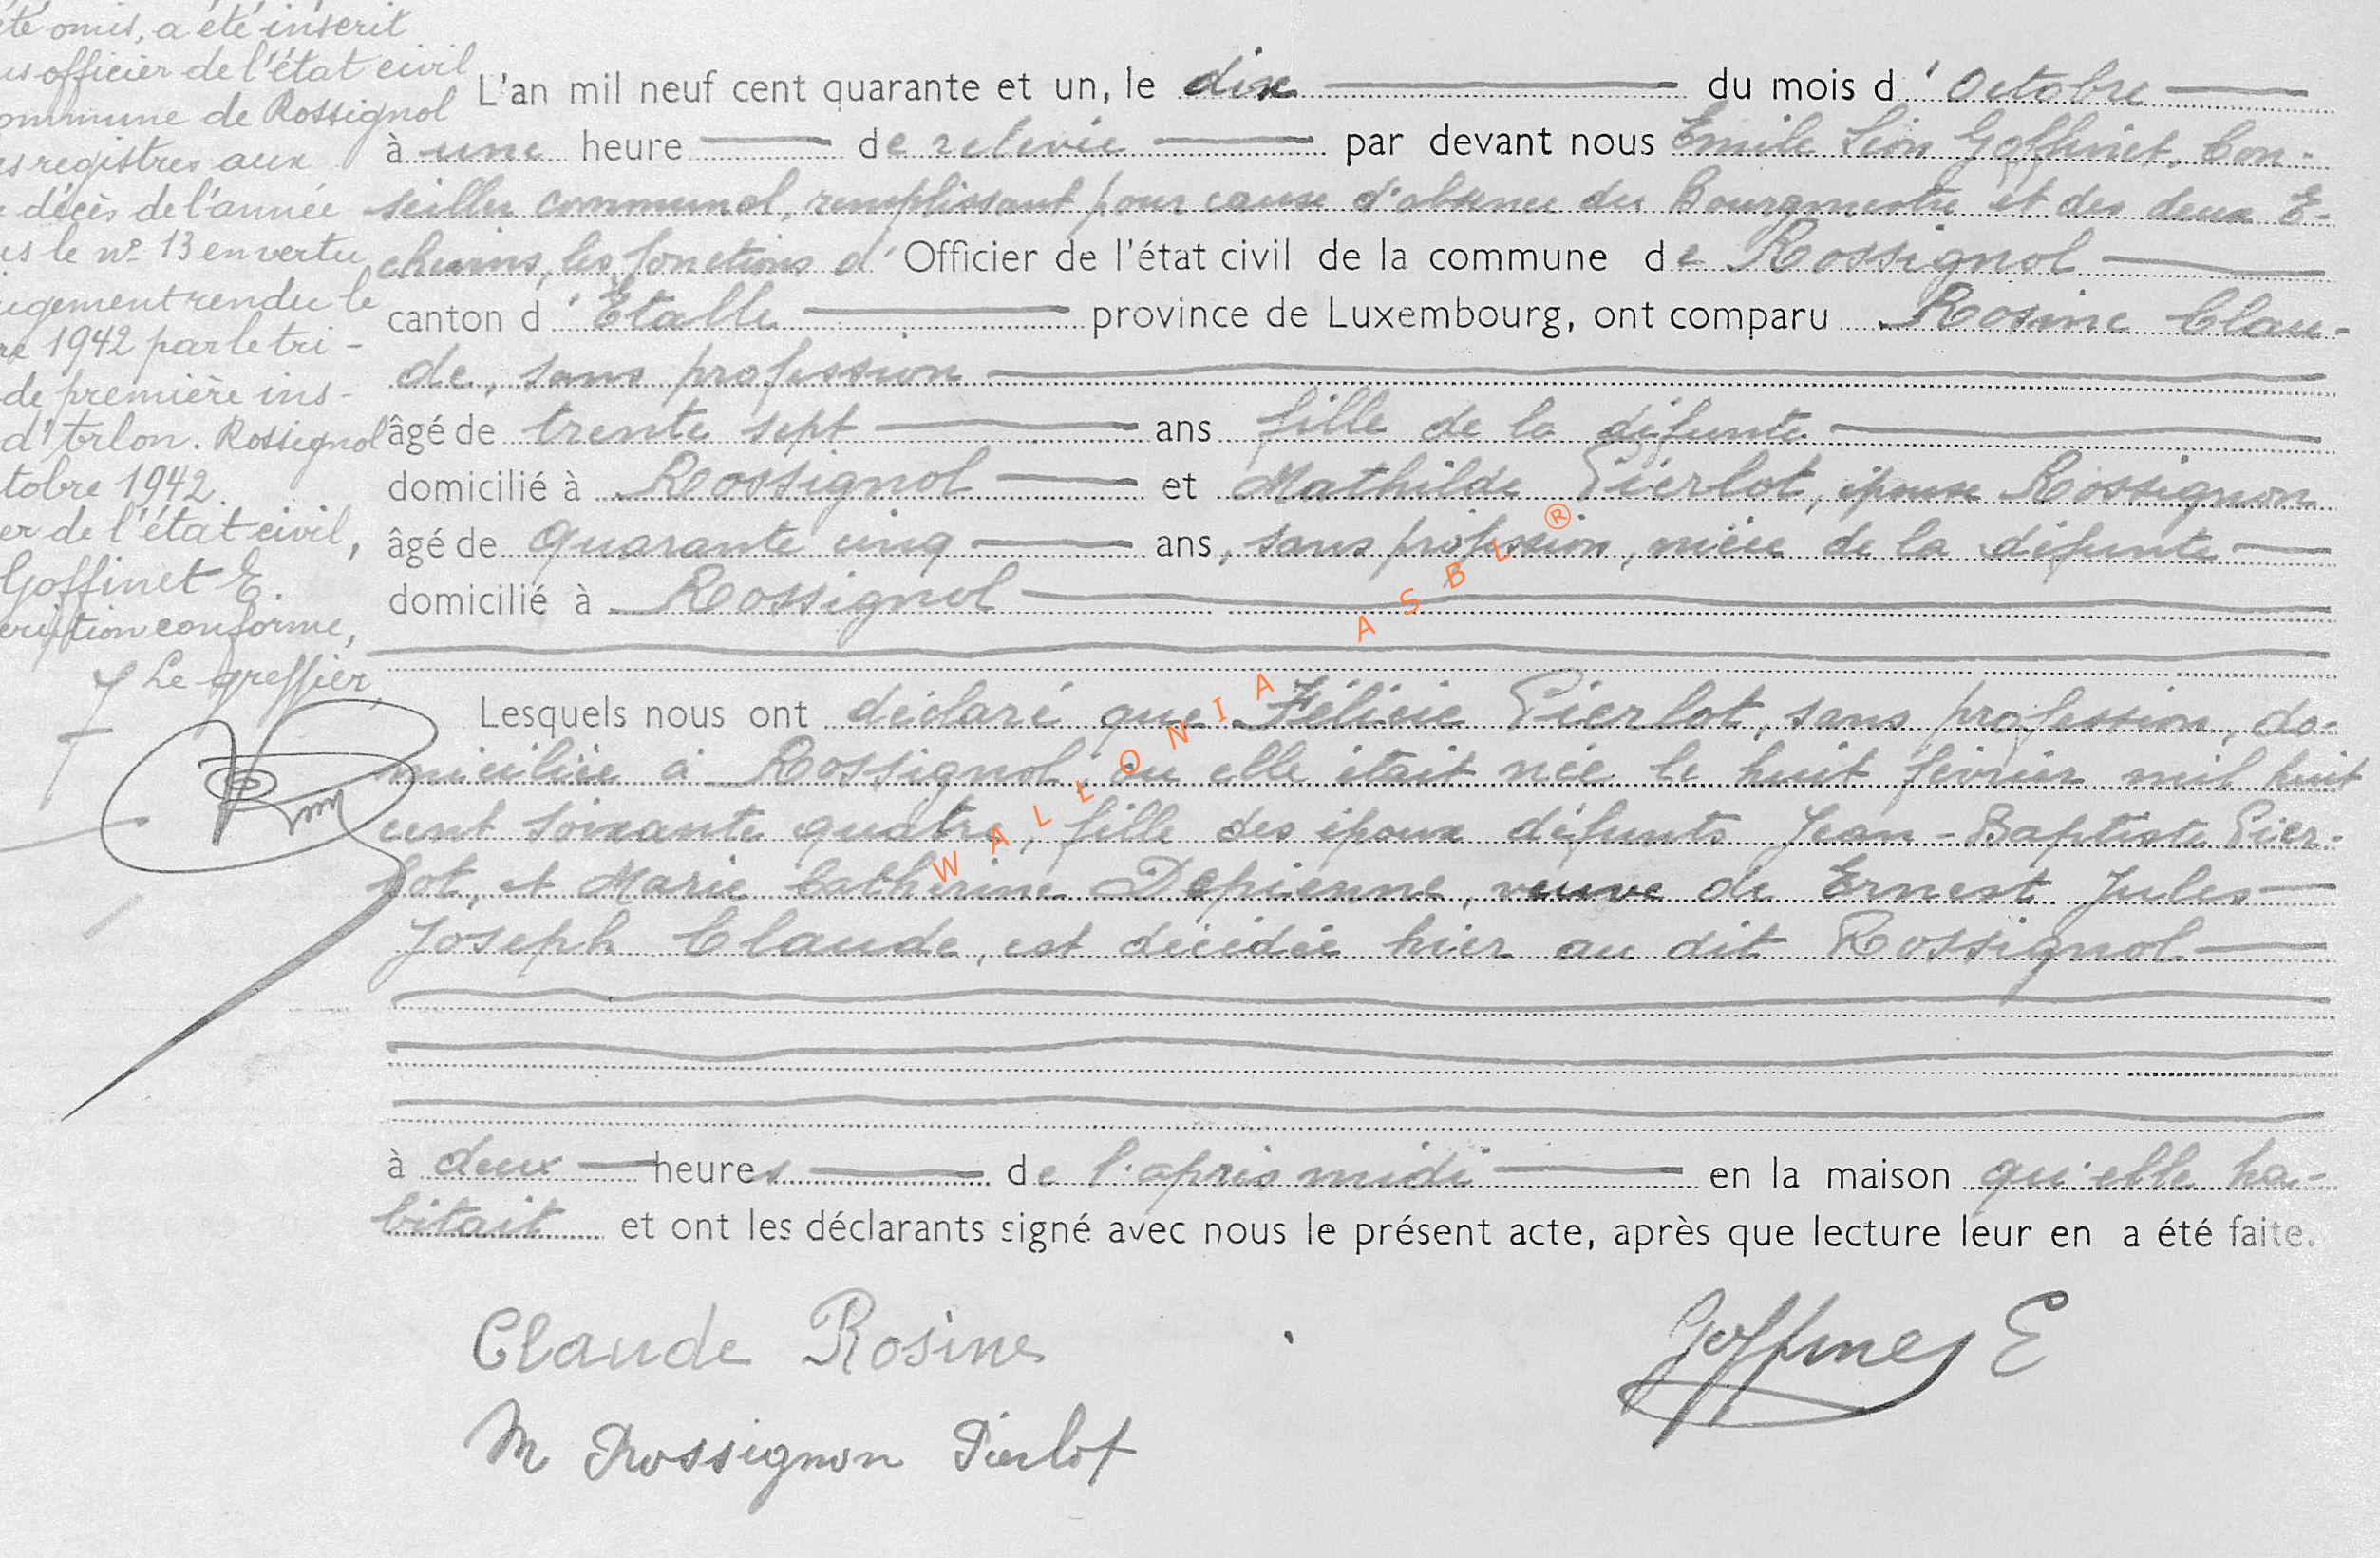 été omis, a été inscrit
officier de l'état civil
commune de Rossignol
registres aux
décès de l'année
le nº 13 en vertu
jugement rendu le
1942 par le tri-
de première ins-
d'Arlon. Rossignol
tobre 1942.
er de l'état civil,
Goffinet E.
cription conforme,
Le greffier,
L'an mil neuf cent quarante et un, le dix du mois d'Octobre
à une heure de relevée par devant nous Emile Léon Goffinet, Con-
seiller communal, remplissant pour cause d'absence du Bourgmestre et des deux E-
chevins, les fonctions d'Officier de l'état civil de la commune de Rossignol
canton d'Etalle province de Luxembourg, ont comparu Rosine Clau-
de, sans profession
âgé de trente sept ans fille de la défunte
domicilié à Rossignol et Mathilde Pierlot, épouse Rossignon
âgé de quarante cinq ans, sans profession, nièce de la défunte
domicilié à Rossignol
Lesquels nous ont déclaré que Félicie Pierlot, sans profession, do-
miciliée à Rossignol, ou elle était née le huit février mil huit
cent soixante quatre, fille des époux défunts Jean-Baptiste Pier-
lot, et Marie Catherine Depienne, veuve de Ernest Jules
Joseph Claude, est décédée hier au dit Rossignol
à deux heures de l'après midi en la maison qu'elle ha-
bitait et ont les déclarants signé avec nous le présent acte, après que lecture leur en a été faite.
Claude Rosine
Goffinet E
M Rossignon Pierlot
WALLONIA ASBL ®